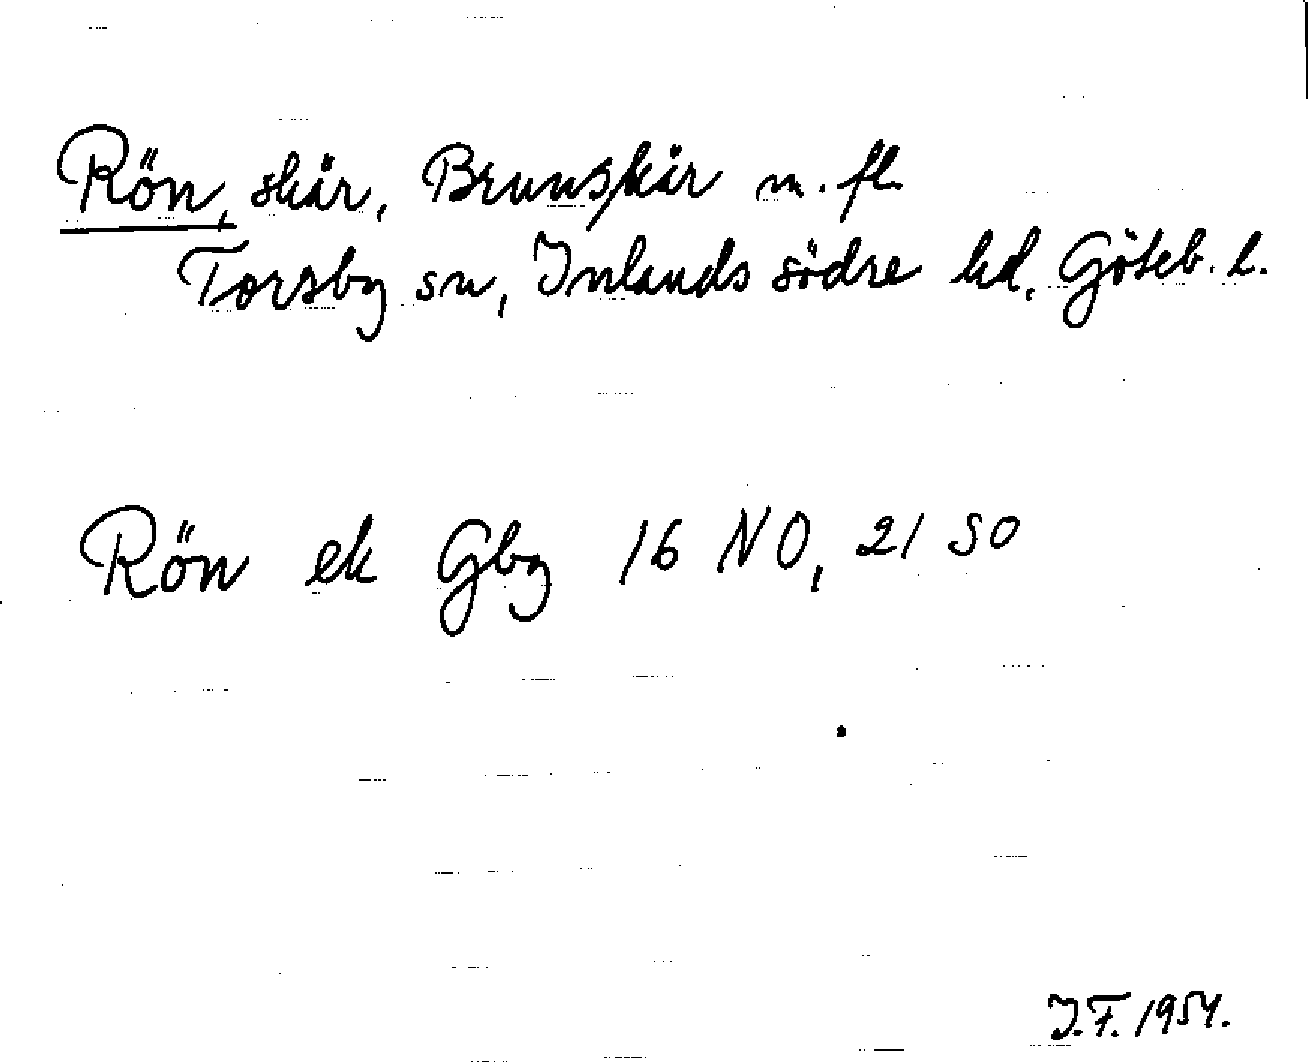 Rön, skär, Brunskär m. fl.
Torsby sn, Inlands södre hd, Göteb. l.
Rön ek Gbg 16 NO, 21 SO
J.F. 1954.